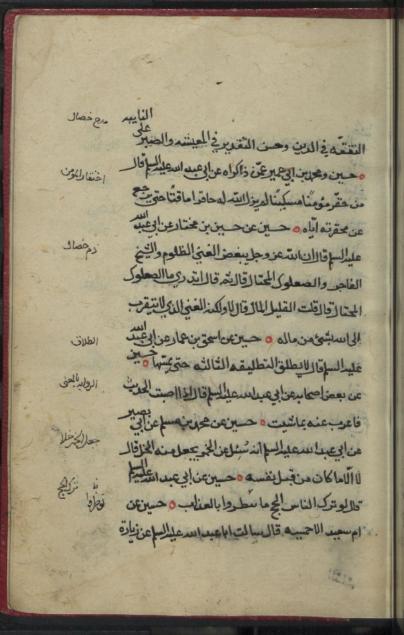 التفقه في الدين وحسن التقدير في المعيشة والصبر على النايبه
حسين ومحمد بن ابي عمير عمن ذكراه عن ابي عبد الله عليه السلم قال
من حقر مؤمنا مسكينا لم يزل الله له حاقرا ماقتا حتى يرجع
عن محقرته اياه حسين عن حسين بن مختار عن ابي عبد الله
عليه السلم قال ان الله عز وجل يبغض الغني الظلوم والشيخ
الفاجر والصعلوك المختال قال ثم قال اتدري ما الصعلوك
المختال قال قلت القليل المال قال لا ولكنه الغني الذي لا يتقرب
الى الله بشئ من ماله حسين عن اسحق بن عمار عن ابي عبد الله
عليه السلم قال لا يطلق التطليقه الثالثه حتى يمسها حسين
عن بعض اصحابه عن ابي عبد الله عليه السلم قال اذا اصبت الحديث
فاعرب عنه بما شيت حسين عن محمد بن مسلم عن ابي بصير
عن ابي عبد الله عليه السلم انه سئل عن الخمر يجعل منه الخل قال
لا الا ما كان من قبل نفسه حسين عن ابي عبد الله عليه السلم
قال لو ترك الناس الحج ما نظروا بالعذاب حسين عن
ام سعيد الاحمسيه قال سالت ابا عبد الله عليه السلم عن زيارة
مدح خصال
احتقار المؤمن
ذم خصال
الطلاق
الرواية بالمعنى
جعل الخمر خلا
ترك الحج